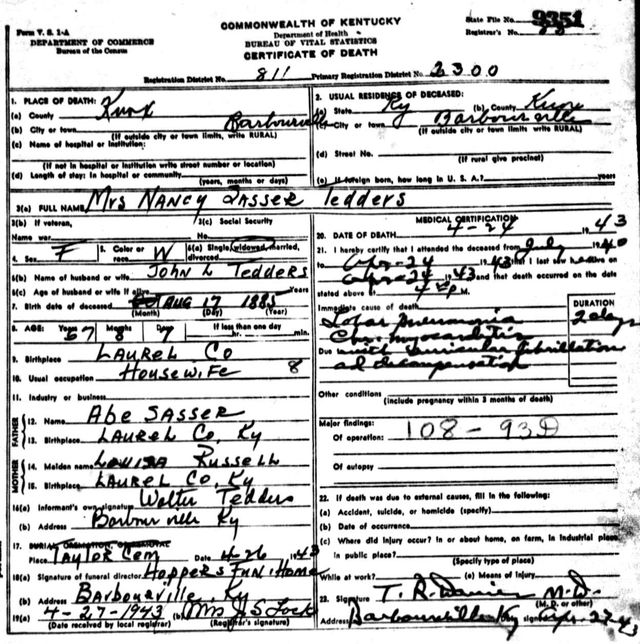 Form V. S. 1-A
DEPARTMENT OF COMMERCE
Bureau of the Census
COMMONWEALTH OF KENTUCKY
Department of Health
BUREAU OF VITAL STATISTICS
CERTIFICATE OF DEATH
State File No. 9351
Registrar's No.
Registration District No. 811 Primary Registration District No. 2300
1. PLACE OF DEATH:
(a) County Knox
(b) City or town Barbourville
(If outside city or town limits, write RURAL)
(c) Name of hospital or institution:
(If not in hospital or institution write street number or location)
(d) Length of stay: In hospital or community
(years, months or days)
2. USUAL RESIDENCE OF DECEASED:
(a) State Ky (b) County Knox
(c) City or town Barbourville
(If outside city or town limits, write RURAL)
(d) Street No.
(If rural give precinct)
(e) If foreign born, how long in U. S. A.? years
3(a) FULL NAME Mrs NANCY SASSER Tedders
3(b) If veteran, 3(c) Social Security
Name war No.
4. Sex F 5. Color or race W 6(a) Single, widowed, married, divorced
6(b) Name of husband or wife John L Tedders
6(c) Age of husband or wife if alive Years
7. Birth date of deceased AUG 17 1885
(Month) (Day) (Year)
8. AGE: Years 57 Months 8 Days 7 If less than one day
hr. min.
9. Birthplace LAUREL Co
10. Usual occupation HOUSEWIFE 8
11. Industry or business
FATHER
12. Name Abe SASSER
13. Birthplace LAUREL Co, Ky
MOTHER
14. Maiden name LOUISA RUSSELL
15. Birthplace LAUREL Co, Ky
16(a) Informant's own signature Walter Tedders
(b) Address Barbourville Ky
17. BURIAL, CREMATION, OR REMOVAL
Place TAYLOR Cem Date 4-26 1943
18(a) Signature of funeral director HOPPERS FUN. HOME
(b) Address BARBOURVILLE, Ky
19(a) 4-27-1943 (b) Mrs J S Lock
(Date received by local registrar) (Registrar's signature)
MEDICAL CERTIFICATION
20. DATE OF DEATH 4-24 1943
21. I hereby certify that I attended the deceased from July 1940
to Apr-24 1943 that I last saw her alive on
Apr-24 1943 and that death occurred on the date
stated above at 4 P M.
Immediate cause of death DURATION
Lobar Pneumonia 2 days
Chr. Myocarditis
Due with auricular fibrillation
ad decompensation
Other conditions
(include pregnancy within 3 months of death)
Major findings:
Of operation: 108-93D
Of autopsy
22. If death was due to external causes, fill in the following:
(a) Accident, suicide, or homicide (specify)
(b) Date of occurrence
(c) Where did injury occur? In or about home, on farm, in industrial place,
in public place?
(Specify type of place)
While at work? (e) Means of injury
23. Signature T. R. Davies M.D.
(M. D. or other)
Address Barbourville Ky Apr. 27-4